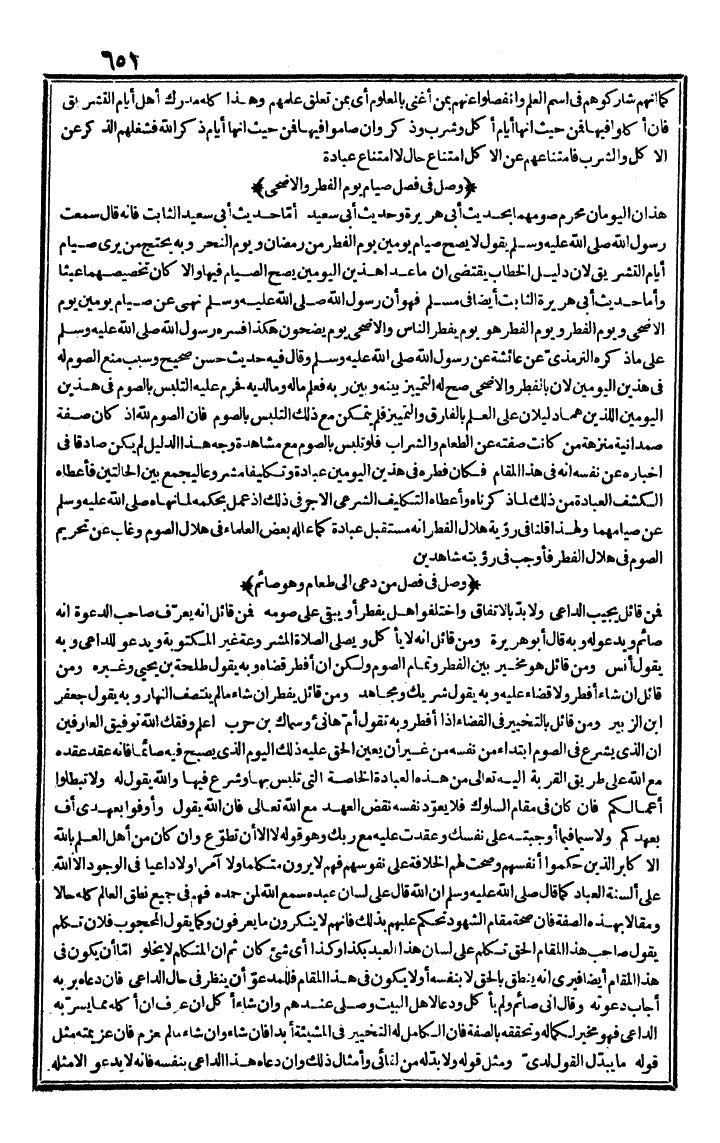 ٦٥٢
كما انهم شاركوهم فى اسم العلم وانفصلوا عنهم بمن أعنى بالمعلوم أى بمن تعلق علمهم وهذا كله مدرك أهل أيام التشريق
فان أكلوا فيها فمن حيث انها أيام أكل وشرب وذكر وان صاموا فيها فمن حيث انها أيام ذكر الله فشغلهم الذكر عن
الاكل والشرب فامتناعهم عن الاكل امتناع حال لا امتناع عبادة
﴿وصل فى فصل صيام يوم الفطر والاضحى﴾
هذان اليومان محرم صومهما بحديث أبى هريرة وحديث أبى سعيد أمّا حديث أبى سعيد الثابت فانه قال سمعت
رسول الله صلى الله عليه وسلم يقول لا يصح صيام يومين يوم الفطر من رمضان ويوم النحر وبه يحتج من يرى صيام
أيام التشريق لان دليل الخطاب يقتضى ان ماعدا هذين اليومين يصح الصيام فيها والا كان تخصيصهما عبثا
وأما حديث أبى هريرة الثابت أيضا فى مسلم فهو أن رسول الله صلى الله عليه وسلم نهى عن صيام يومين يوم
الاضحى ويوم الفطر ويوم الفطر هو يوم يفطر الناس والاضحى يوم يضحون هكذا فسره رسول الله صلى الله عليه وسلم
على ماذكره الترمذىّ عن عائشة عن رسول الله صلى الله عليه وسلم وقال فيه حديث حسن صحيح وسبب منع الصوم له
فى هذين اليومين لان بالفطر والاضحى صح له التمييز بينه وبين ربه فعلم ماله وما لديه فحرم عليه التلبس بالصوم فى هذين
اليومين اللذين هما دليلان على العلم بالفارق والتمييز فلم يتمكن مع ذلك التلبس بالصوم فان الصوم لله اذ كان صفة
صمدانية منزهة من كانت صفته عن الطعام والشراب فلو تلبس بالصوم مع مشاهدة وجه هذا الدليل لم يكن صادقا فى
اخباره عن نفسه انه فى هذا المقام فكان فطره فى هذين اليومين عبادة وتكليفا مشروعا ليجمع بين الحالتين فأعطاه
الكشف العبادة من ذلك لماذكرناه وأعطاه التكليف الشرعى الاجر فى ذلك اذ عمل بحكمه لما نهاه صلى الله عليه وسلم
عن صيامهما ولهذا قلنا فى رؤية هلال الفطر انه مستقبل عبادة كما عاله بعض العلماء فى هلال الصوم وغاب عن تحريم
الصوم فى هلال الفطر فأوجب فى رؤيته شاهدين
﴿وصل فى فصل من دعى الى طعام وهو صائم﴾
فمن قائل يجيب الداعى ولا بدّ بالاتفاق واختلفوا هل يفطر أو يبقى على صومه فمن قائل انه يعرّف صاحب الدعوة انه
صائم ويدعو له وبه قال أبو هريرة ومن قائل انه لا يأكل ويصلى الصلاة المشروعة غير المكتوبة ويدعو للداعى وبه
يقول أنس ومن قائل هو مخير بين الفطر وتمام الصوم ولكن ان أفطر قضاه وبه يقول طلحة بن يحيى وغيره ومن
قائل ان شاء أفطر ولا قضاء عليه وبه يقول شريك ومجاهد ومن قائل يفطر ان شاء مالم ينتصف النهار وبه يقول جعفر
ابن الزبير ومن قائل بالتخيير فى القضاء اذا أفطر وبه تقول أمّ هانئ وسماك بن حرب اعلم وفقك الله توفيق العارفين
ان الذى يشرع فى الصوم ابتداء من نفسه من غير أن يعين الحق عليه ذلك اليوم الذى يصبح فيه صائما فانه عقد عقده
مع الله على طريق القربة اليه تعالى من هذه العبادة الخاصة التى تلبس بها وشرع فيها والله يقول له ولا تبطلوا
أعمالكم فان كان فى مقام السلوك فلا يعوّد نفسه نقض العهد مع الله تعالى فان الله يقول وأوفوا بعهدى أف
بعهدكم ولا سيما فيما أوجبته على نفسك وعقدت عليه مع ربك وهو قوله لا الا أن تطوّع وان كان من أهل العلم بالله
الاكابر الذين حكموا أنفسهم وصحت لهم الخلافة على نفوسهم فهم لا يرون متكلما ولا آمرا ولا داعيا فى الوجود الا الله
على ألسنة العباد كما قال صلى الله عليه وسلم ان الله قال على لسان عبده سمع الله لمن حمده فهم فى جميع نطق العالم كله حالا
ومقالا بهذه الصفة فان صحة مقام الشهود تحكم عليهم بذلك فانهم لا ينكرون ما يعرفون وكما يقول المحجوب فلان تكلم
يقول صاحب هذا المقام الحق تكلم على لسان هذا العبد بكذا وكذا أى شئ كان ثم ان المتكلم لا يخلو امّا أن يكون فى
هذا المقام أيضا فيرى انه ينطق بالحق لا بنفسه أو لا يكون فى هذا المقام فللمدعوّ أن ينظر فى حال الداعى فان دعاه بربه
أجاب دعوته وقال انى صائم ولم يأكل ودعا لاهل البيت وصلى عندهم وان شاء أكل ان عرف ان أكله مما يسرّ به
الداعى فهو مخير لكماله وتحققه بالصفة فان الكامل له التخيير فى المشيئة أبدا فان شاء وان شاء مالم يعزم فان عزيمته مثل
قوله ما يبدّل القول لدىّ ومثل قوله ولا بدّ له من لقائى وأمثال ذلك وان دعاه هذا الداعى بنفسه فانه لا يدعو الا مثله